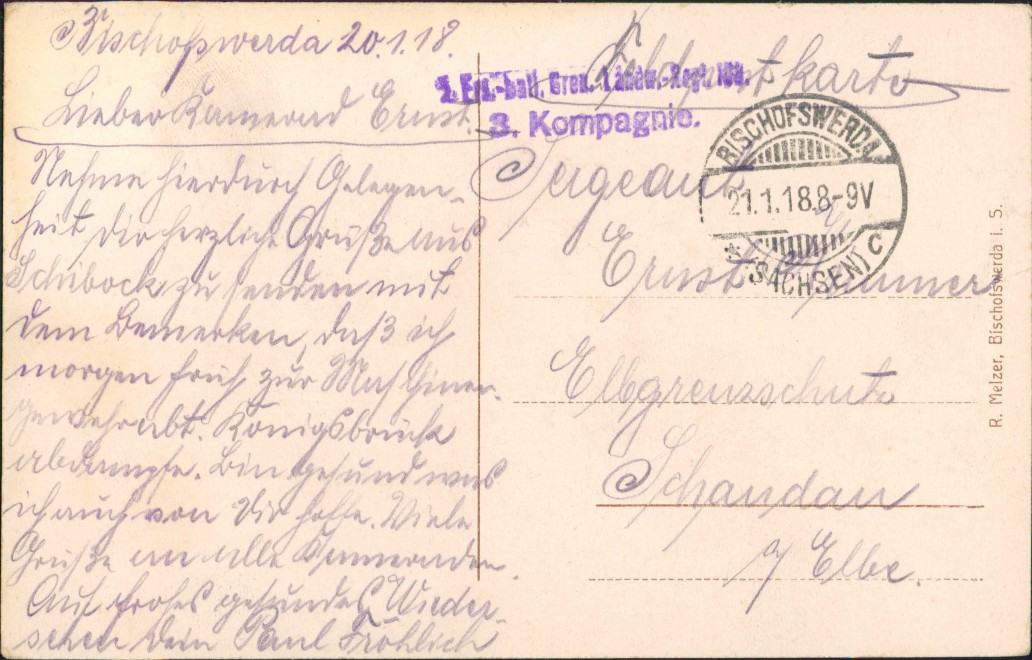 Bischofswerda 20.1.18.
Lieber Kamerad Ernst.
Nehme hierdurch Gelegen-
heit Dir herzliche Grüße aus
Schibock zu senden mit
dem Bemerken, daß ich
morgen früh zur Maschinen-
gewehrabt. Königsbrück
abdampfe. Bin gesund was
ich auch von Dir hoffe. Viele
Grüße an alle Kameraden.
Auf frohes gesundes Wieder-
sehen Dein Paul Fröhlich
Feldpostkarte
2. Ers.-Batl. Gren.-Landw.-Regt. 100.
3. Kompagnie.
BISCHOFSWERDA
21.1.18.8-9V
* (SACHSEN) C
Sergeant
Ernst
Elbgrenzschutz
Schandau
a/Elbe.
R. Melzer, Bischofswerda i. S.